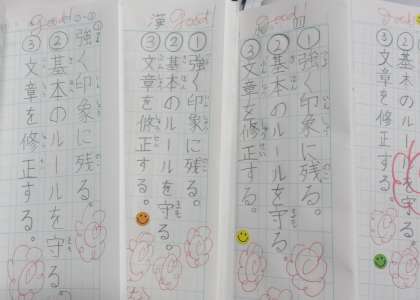 good!
①強く印象に残る。
②基本のルールを守る。
③文章を修正する。
漢
good!
①強く印象に残る。
②基本のルールを守る。
③文章を修正する。
good!
①強く印象に残る。
②基本のルールを守る。
③文章を修正する。
good
①
②基本のルールを守る。
③文章を修正する。